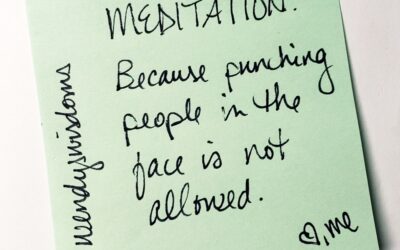 MEDITATION.
Because punching
people in the
face is not
allowed.
♡, me
wendyswisdoms